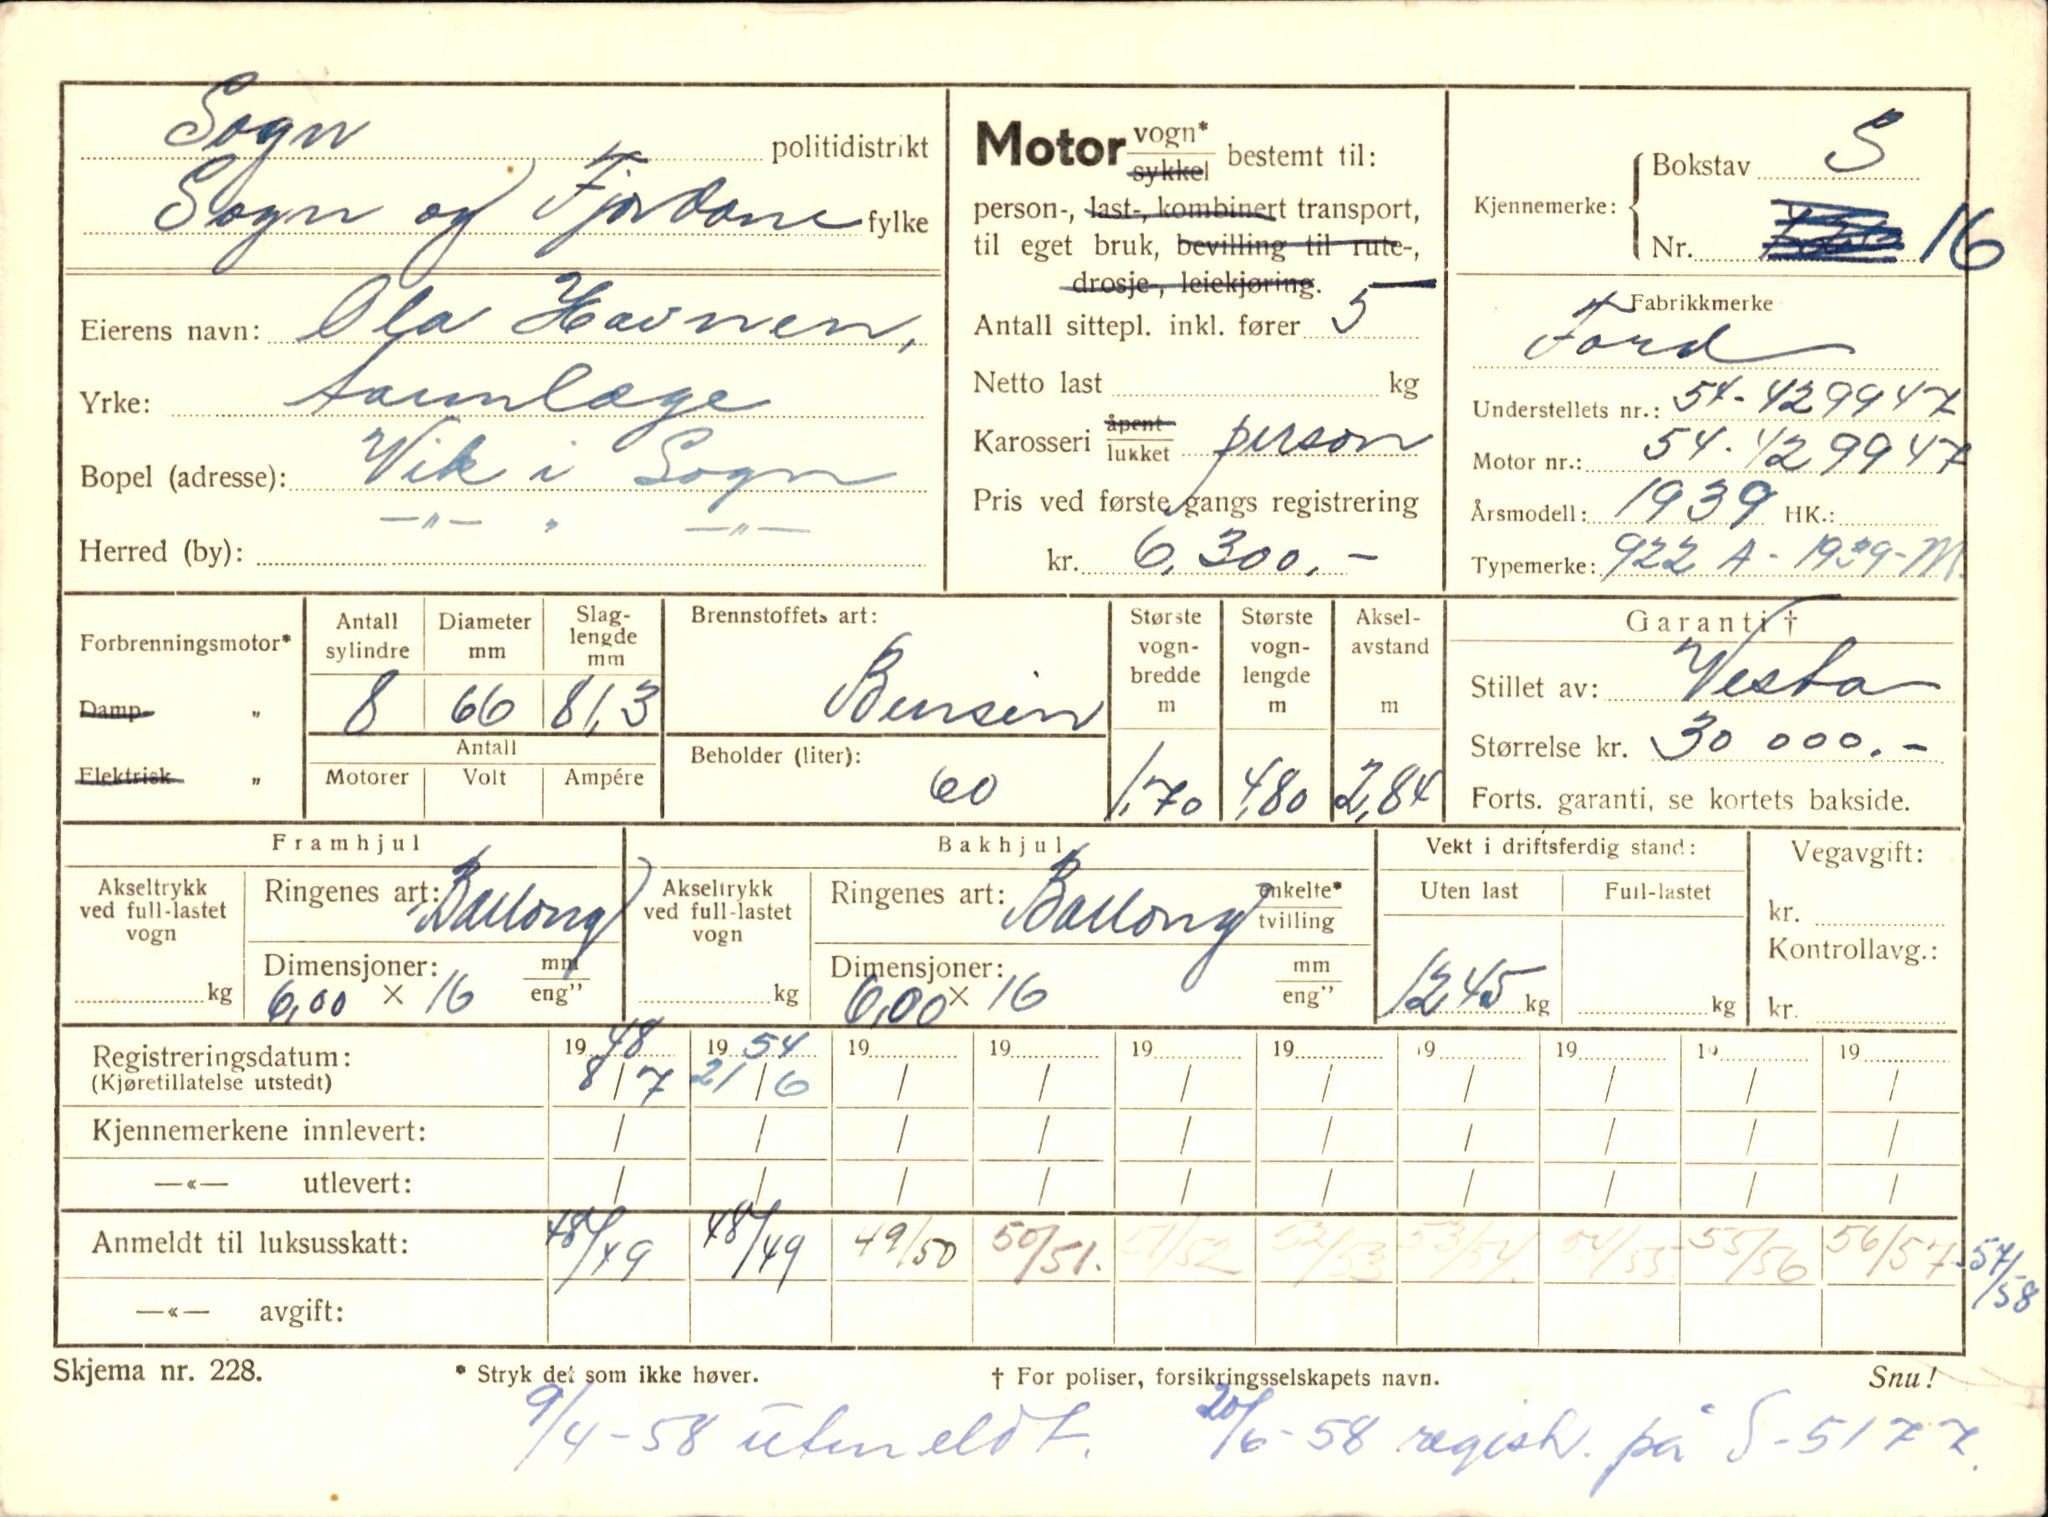 Sogn politidistrikt
Sogn og Fjordane fylke
Eierens navn: Ola Havnen,
Yrke: tannlæge
Bopel (adresse): Vik i Sogn
Herred (by): —"— " —"—
Motor vogn* / sykkel bestemt til:
person-, last-, kombinert transport,
til eget bruk, bevilling til rute-,
drosje-, leiekjøring.
Antall sittepl. inkl. fører 5
Netto last kg
Karosseri åpent / lukket person
Pris ved første gangs registrering
kr. 6.300.-
Kjennemerke: Bokstav S
Nr. 16
Fabrikkmerke
Ford
Understellets nr.: 54-429947
Motor nr.: 54-429947
Årsmodell: 1939 HK.:
Typemerke: 922 A - 1939-M.
Forbrenningsmotor*
Damp- "
Elektrisk "
Antall sylindre 8
Diameter mm 66
Slaglengde mm 81,3
Antall
Motorer Volt Ampére
Brennstoffets art:
Bensin
Beholder (liter):
60
Største vogn-bredde m 1,70
Største vogn-lengde m 4,80
Aksel-avstand m 2,84
Garanti †
Stillet av: Vesta
Størrelse kr. 30 000.-
Forts. garanti, se kortets bakside.
Framhjul
Akseltrykk ved full-lastet vogn kg
Ringenes art: Ballong
Dimensjoner: mm / eng"
6,00 × 16
Bakhjul
Akseltrykk ved full-lastet vogn kg
Ringenes art: Ballong enkelte* / tvilling
Dimensjoner: mm / eng"
6,00 × 16
Vekt i driftsferdig stand:
Uten last Full-lastet
1245 kg kg
Vegavgift:
kr.
Kontrollavg.:
kr.
Registreringsdatum: 19 48 19 54 19 19 19 19 19 19 19 19
(Kjøretillatelse utstedt) 8/7 21/6 / / / / / / / /
Kjennemerkene innlevert: / / / / / / / / / /
—«— utlevert: / / / / / / / / / /
Anmeldt til luksusskatt: 48/49 48/49 49/50 50/51. 51/52 52/53 53/54. 54/55 55/56 56/57 57/58
—«— avgift:
Skjema nr. 228. * Stryk det som ikke høver. † For poliser, forsikringsselskapets navn. Snu!
9/4-58 utmeldt. 20/6-58 registr. på S-5177.